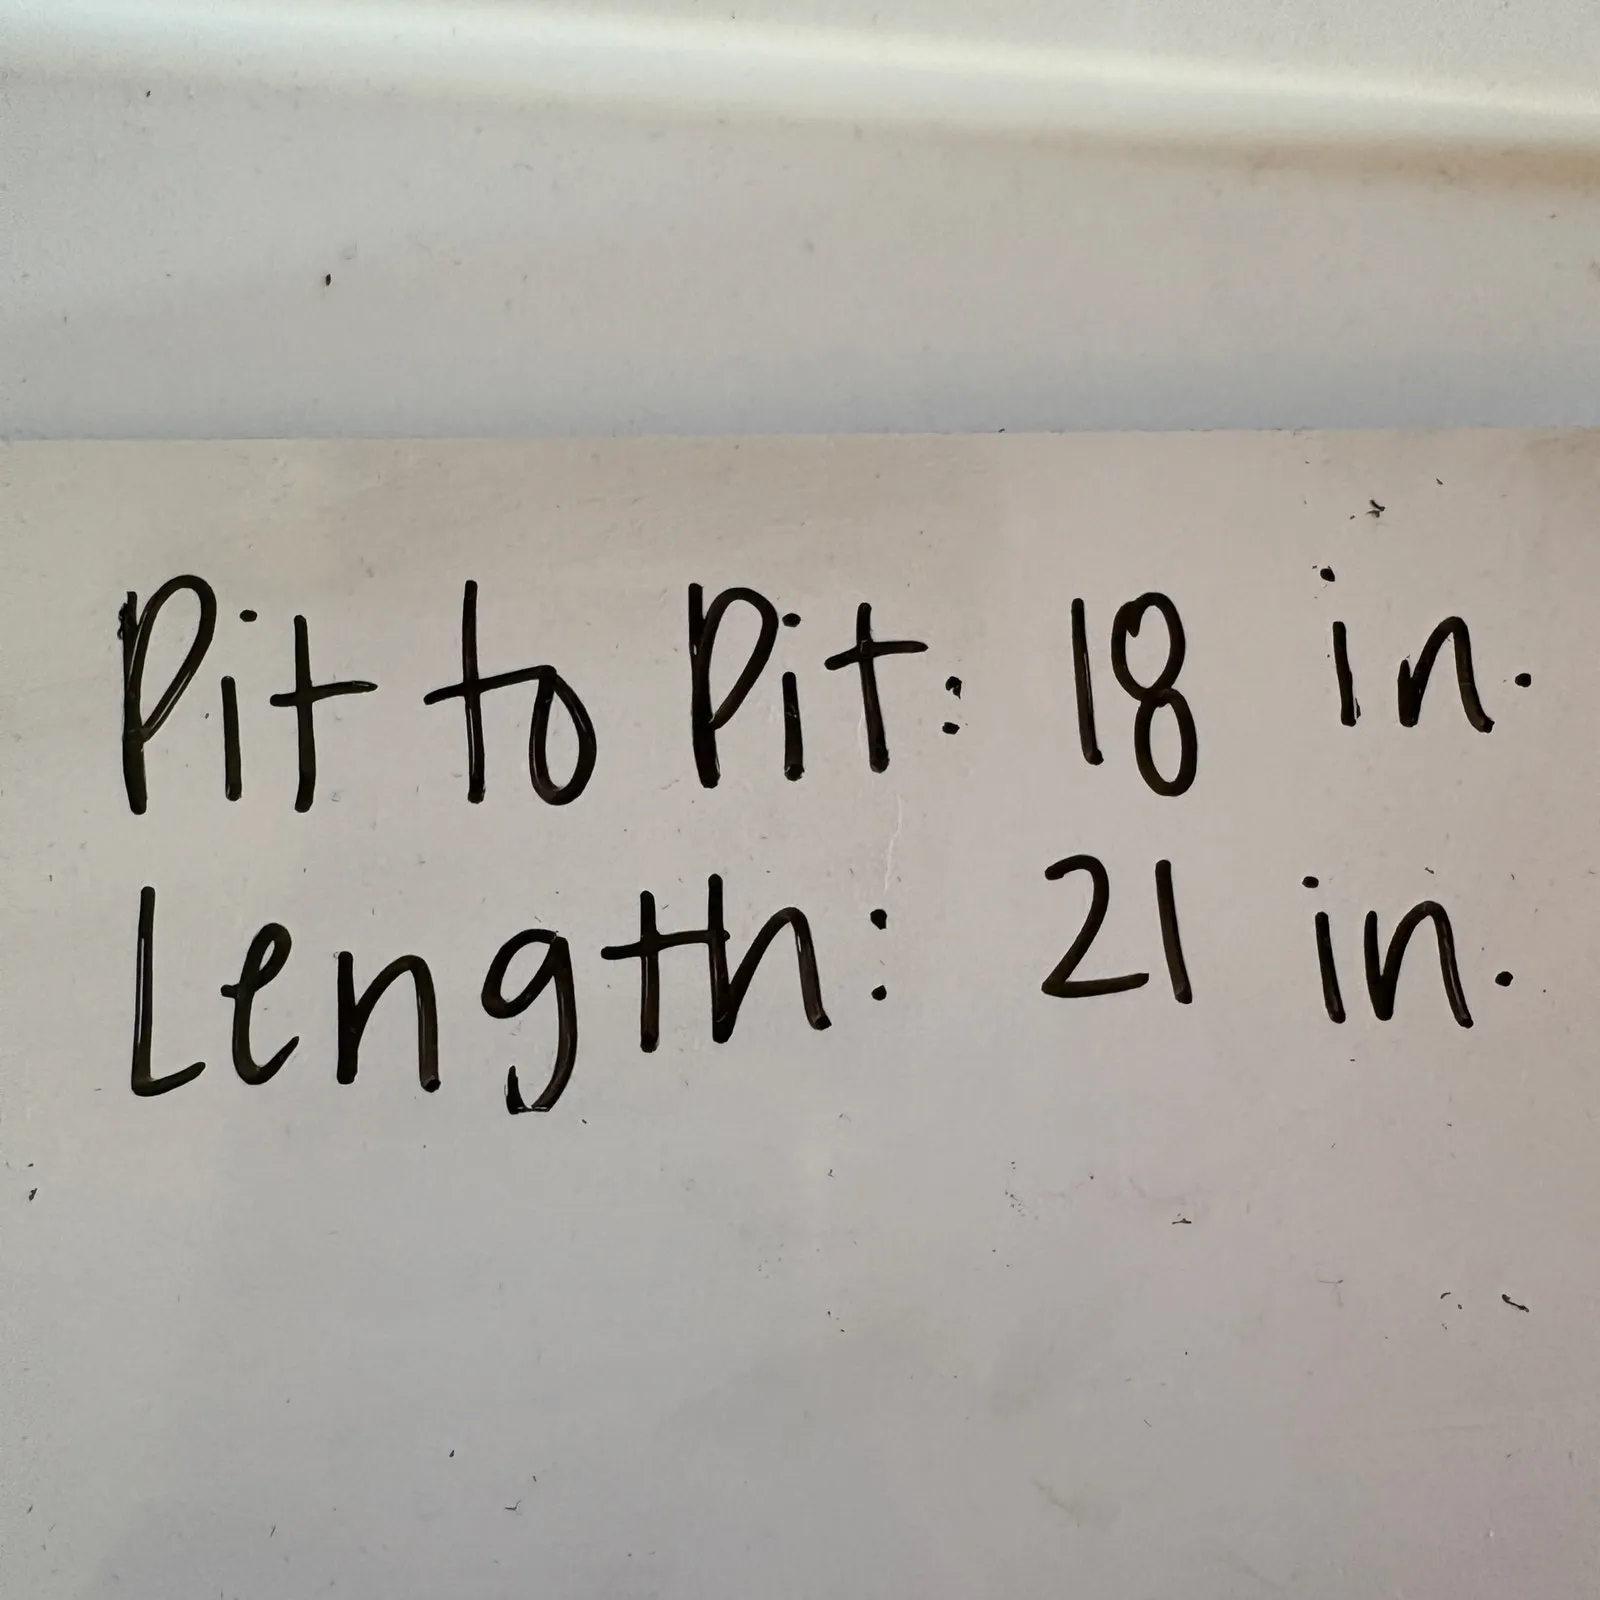 Pit to Pit: 18 in.
Length: 21 in.